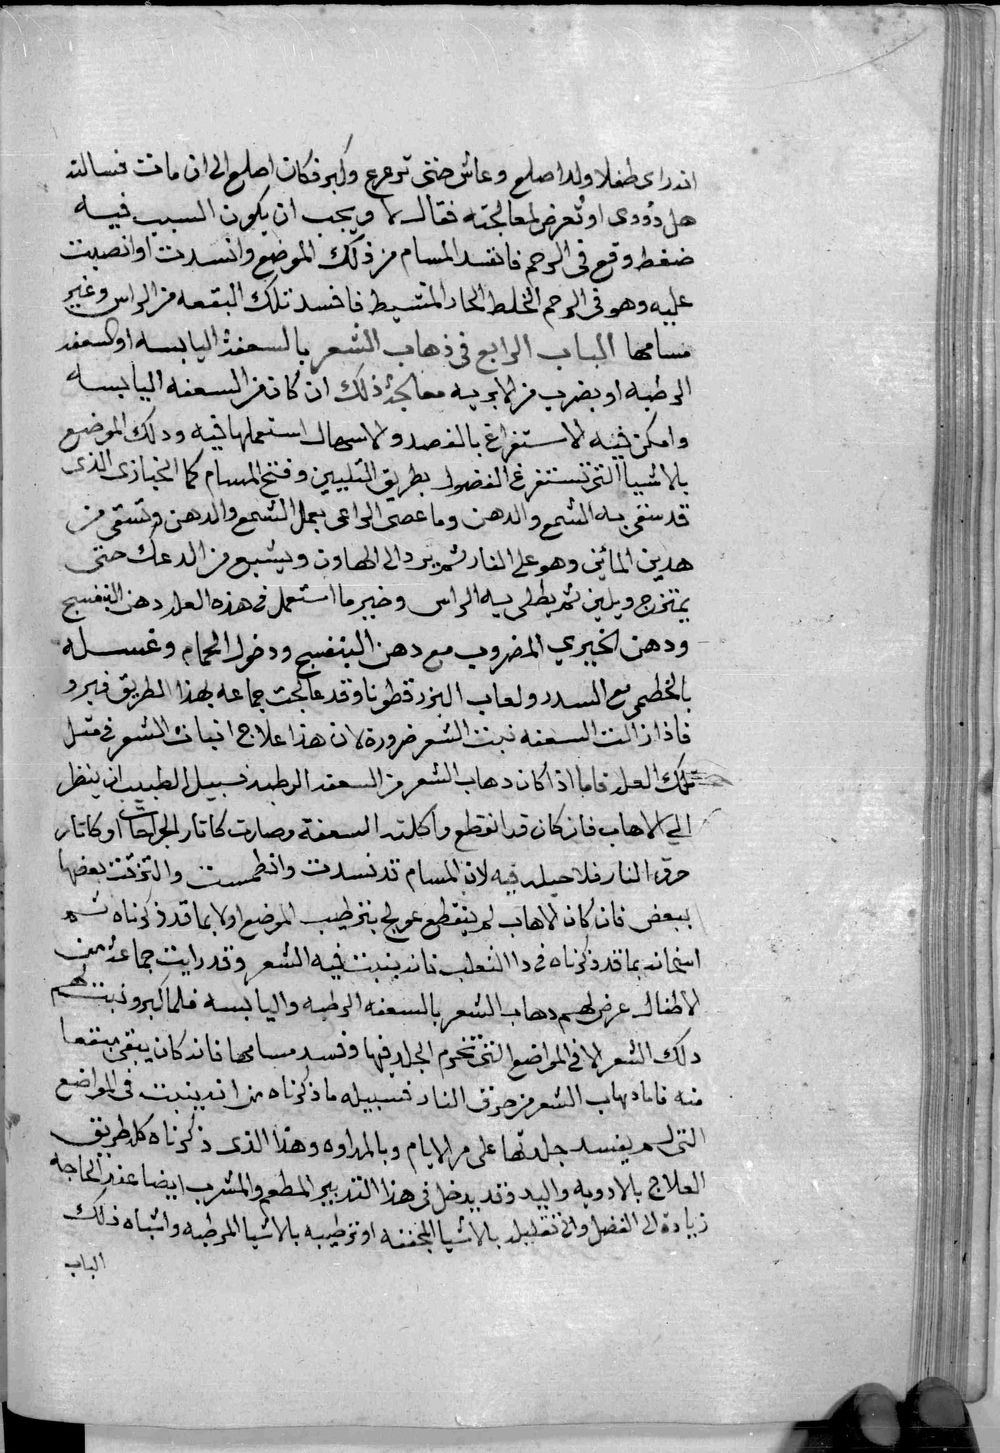 انه راى طفلا ولد اصلع وعاش حتى ترعرع وكبر فكان اصلع الى ان مات فسالته
هل دووى او تعرض لمعالجته فقال لا ويجب ان يكون السبب فيه
ضغط وقع فى الرحم فانفسد المسام من ذلك الموضع وانسدت او انصبت
عليه وهو فى الرحم الخلط الحار المتشيط فافسد تلك البقعه من الراس وغير
مسامها الباب الرابع فى ذهاب الشعر بالسعفة اليابسه او السعفه
الرطبه او بضرب من الابريه معالجة ذلك ان كان من السعفه اليابسه
وامكن فيه الاستفراغ بالفصد والاسهال استعملها فيه ودلك الموضع
بالاشيا التى تستفرغ الفضول بطريق التليين وفتح المسام كما الخبازى الذى
قد سقى به الشمع والدهن وما عصى الراعى يعمل الشمع والدهن وتسقى من
هدين المائين وهو على النار ثم يرد الى الهاون ويشبع من الدعك حتى
يمتزج ويلين ثم يطلى به الراس وخير ما استعمل فى هذه العله دهن البنفسج
ودهن الخيرى المضروب مع دهن البنفسج ودخول الحمام وغسله
بالخطمى مع السدر ولعاب البزر قطونا وقد عالجت جماعه بهذا الطريق فبرو
فاذا زالت السعفه نبت الشعر ضرورة لان هذا علاج انبات الشعر فى مثل
تلك العله فاما اذا كان دهاب الشعر من السعفه الرطبه فسبيل الطبيب ان ينظر
الى الاهاب فان كان قد انقطع واكلته السعفة وصارت كاثار الجراحات او كاثار
حرق النار فلا حيله فيه لان المسام قد نسدت وانطمست والتزقت بعضها
ببعض فان كان الاهاب لم ينقطع عولج بترطيب الموضع اولا بما قد ذكرناه ثم
اسخانه بما قد ذكرناه فى دا الثعلب فانه ينبت فيه الشعر وقد رايت جماعة من
الاطفال عرض لهم دهاب الشعر بالسعفه الرطبه واليابسه فلما كبرو نبت لهم
دلك الشعر الا فى المواضع التى تخرم الجلد فيها وفسد مسامها فانه كان يبقى مبقعا
منه فاما دهاب الشعر من حرق النار فسبيله ما ذكرناه من انه ينبت فى المواضع
التى لم يفسد جلدتها على مر الايام وبالمداوه وهذا الذى ذكرناه كله طريق
العلاج بالادويه واليد وقد يدخل فى هذا التدبير المطعم والمشرب ايضا عند الحاجه
زيادة الى الفضل والى تقليله بالاشيا المجففه او ترطيبه بالاشيا المرطبه واشباه ذلك
الباب